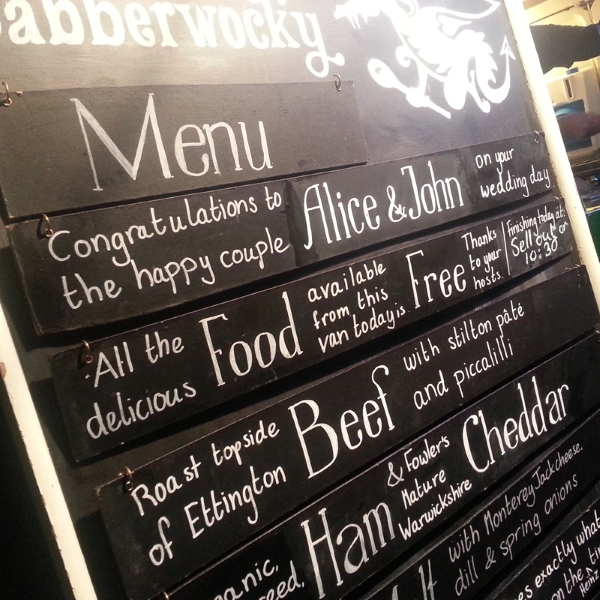 abberwocky
Menu
Congratulations to
the happy couple
Alice & John
on your
wedding day
All the
delicious
Food
available
from this
van today is
Free
Thanks
to your
hosts.
Finishing today at:
Sell out or
10:30
Roast topside
of Ettington
Beef
with stilton pâté
and piccalilli
Ham
& Fowler's
Mature
Warwickshire
Cheddar
with Monterey Jack cheese,
dill & spring onions
exactly what
on the
Heinz